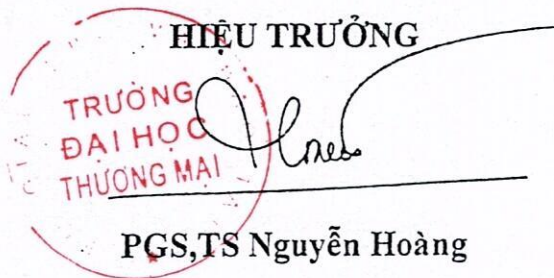 HIỆU TRƯỞNG
TRƯỜNG
ĐẠI HỌC
THƯƠNG MẠI
PGS,TS Nguyễn Hoàng